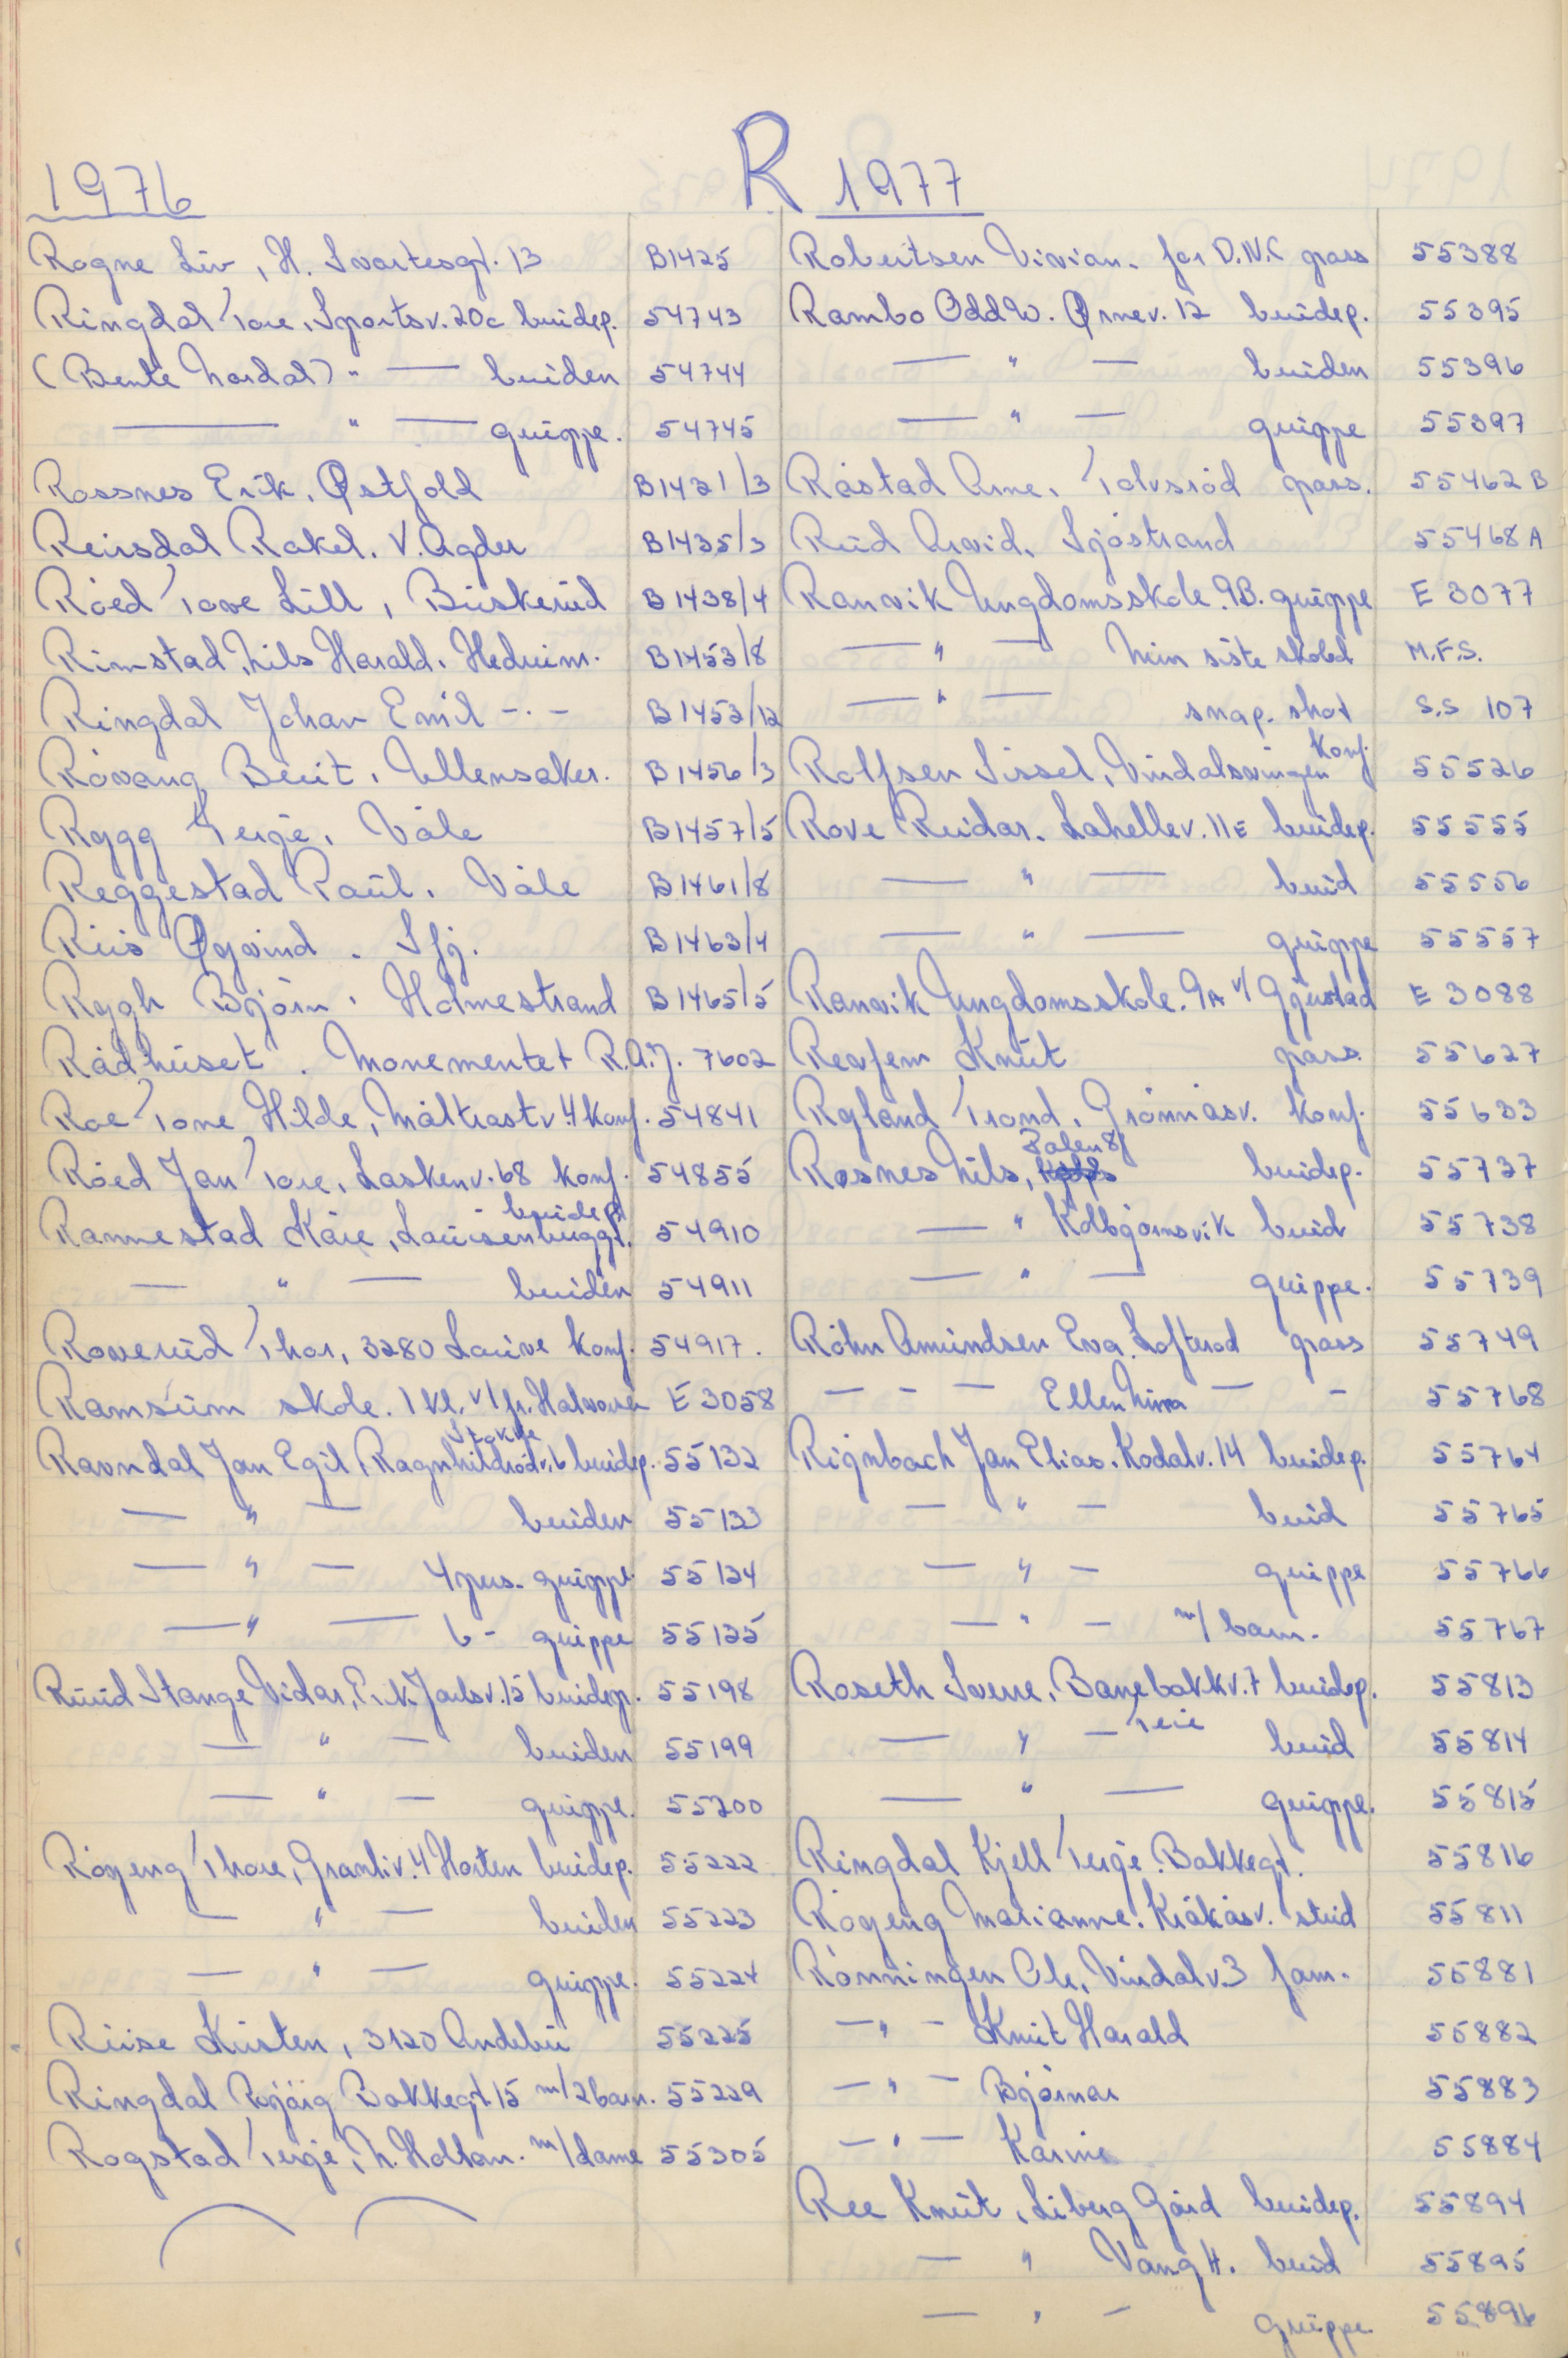 R
1976
Rogne Liv, H. Svartesgt. 13 B1425
Ringdal Tore, Sportsv. 20c brudep. 54743
(Bente Nordal) " — bruden 54744
— " — gruppe. 54745
Rossnes Erik. Østfold B1431/3
Reirsdal Rakel. V. Agder B1435/3
Röed Tove Lill, Buskerud B1438/4
Rimstad, Nils Harald. Hedmm. B1453/8
Ringdal Johan Emil -.- B1453/12
Rövang Berit. Ullensaker. B1456/3
Rygg Terje. Våle B1457/5
Reggestad Paul. Våle B1461/8
Riis Øyvind. Sfj. B1463/4
Rygh Björn. Holmestrand B1465/5
Rådhuset. Monementet R.A.J. 7602
Roe Tone Hilde, Måltrostv. 4 konf. 54841
Röed Jan Tore, Laskenv. 68 konf. 54855
Rannestad Kåre, Laursenbryggt. brudep. 54910
— " — bruden 54911
Roverud Thor, 3280 Lauve konf. 54917.
Ramsum skole. 1 kl. v/ fr. Halvorsen E 3058
Ravndal Jan Egil, Ragnhildrödv. 6 Stokke brudep. 55132
— " — bruden 55133
— " — 4 pers. gruppe 55134
— " — 6 - gruppe 55135
Ruud Stange Vidar, Erik Jarlsv. 15 brudep. 55198
— " — bruden 55199
— " — gruppe. 55200
Röyeng Thore, Granliv. 4 Horten brudep. 55222
— " — bruden 55223
— " — gruppe. 55224
Riise Kirsten, 3120 Andebu 55225
Ringdal Björg Bakkegt. 15 m/2 barn. 55229
Rogstad Terje, N. Holtan. m/dame 55305
1977
Robertsen Vivian. for D.N.C pass 55388
Rambo Odd W. Ørnev. 12 brudep. 55395
— " — bruden 55396
— " — gruppe 55397
Råstad Arne. Tolvsröd pass. 55462 B
Rud Arvid. Sjöstrand 55468 A
Ranvik Ungdomsskole. 9B. gruppe E 3077
— " — Min siste skoled M.F.S.
— " — snap. shot S.S 107
Rolfsen Sissel, Vindalsvingen konf. 55526
Rove Reidar. Lahellev. 11E brudep. 55555
— " — brud 55556
— " — gruppe 55557
Ranvik Ungdomsskole. 9A v/ Gjerstad E 3088
Revfem Knut pass. 55627
Ryland Trond. Grönnåsv. konf. 55633
Rosnes Nils, Palen 8 brudep. 55737
— " Kolbjørnsvik brud 55738
— " — gruppe. 55739
Röhn Amundsen Eva. Lofterod pass 55749
— - — Ellen Nina — - 55768
Rignbach Jan Elias. Kodalv. 14 brudep. 55764
— " — brud 55765
— " — gruppe 55766
— " — m/ barn. 55767
Roseth Sverre. Banebakkv. 7 brudep. 55813
— " — Teie brud 55814
— " — gruppe. 55815
Ringdal Kjell Terje. Bakkegt. 55816
Röyeng Marianne. Kråkåsv. stud 55811
Rönningen Ole. Vindalv. 3 fam. 55881
— " — Knut Harald 55882
— " — Björnar 55883
— " — Karin 55884
Ree Knut, Liberg Gård brudep. 55894
— " Vang H. brud 55895
— " — gruppe. 55896